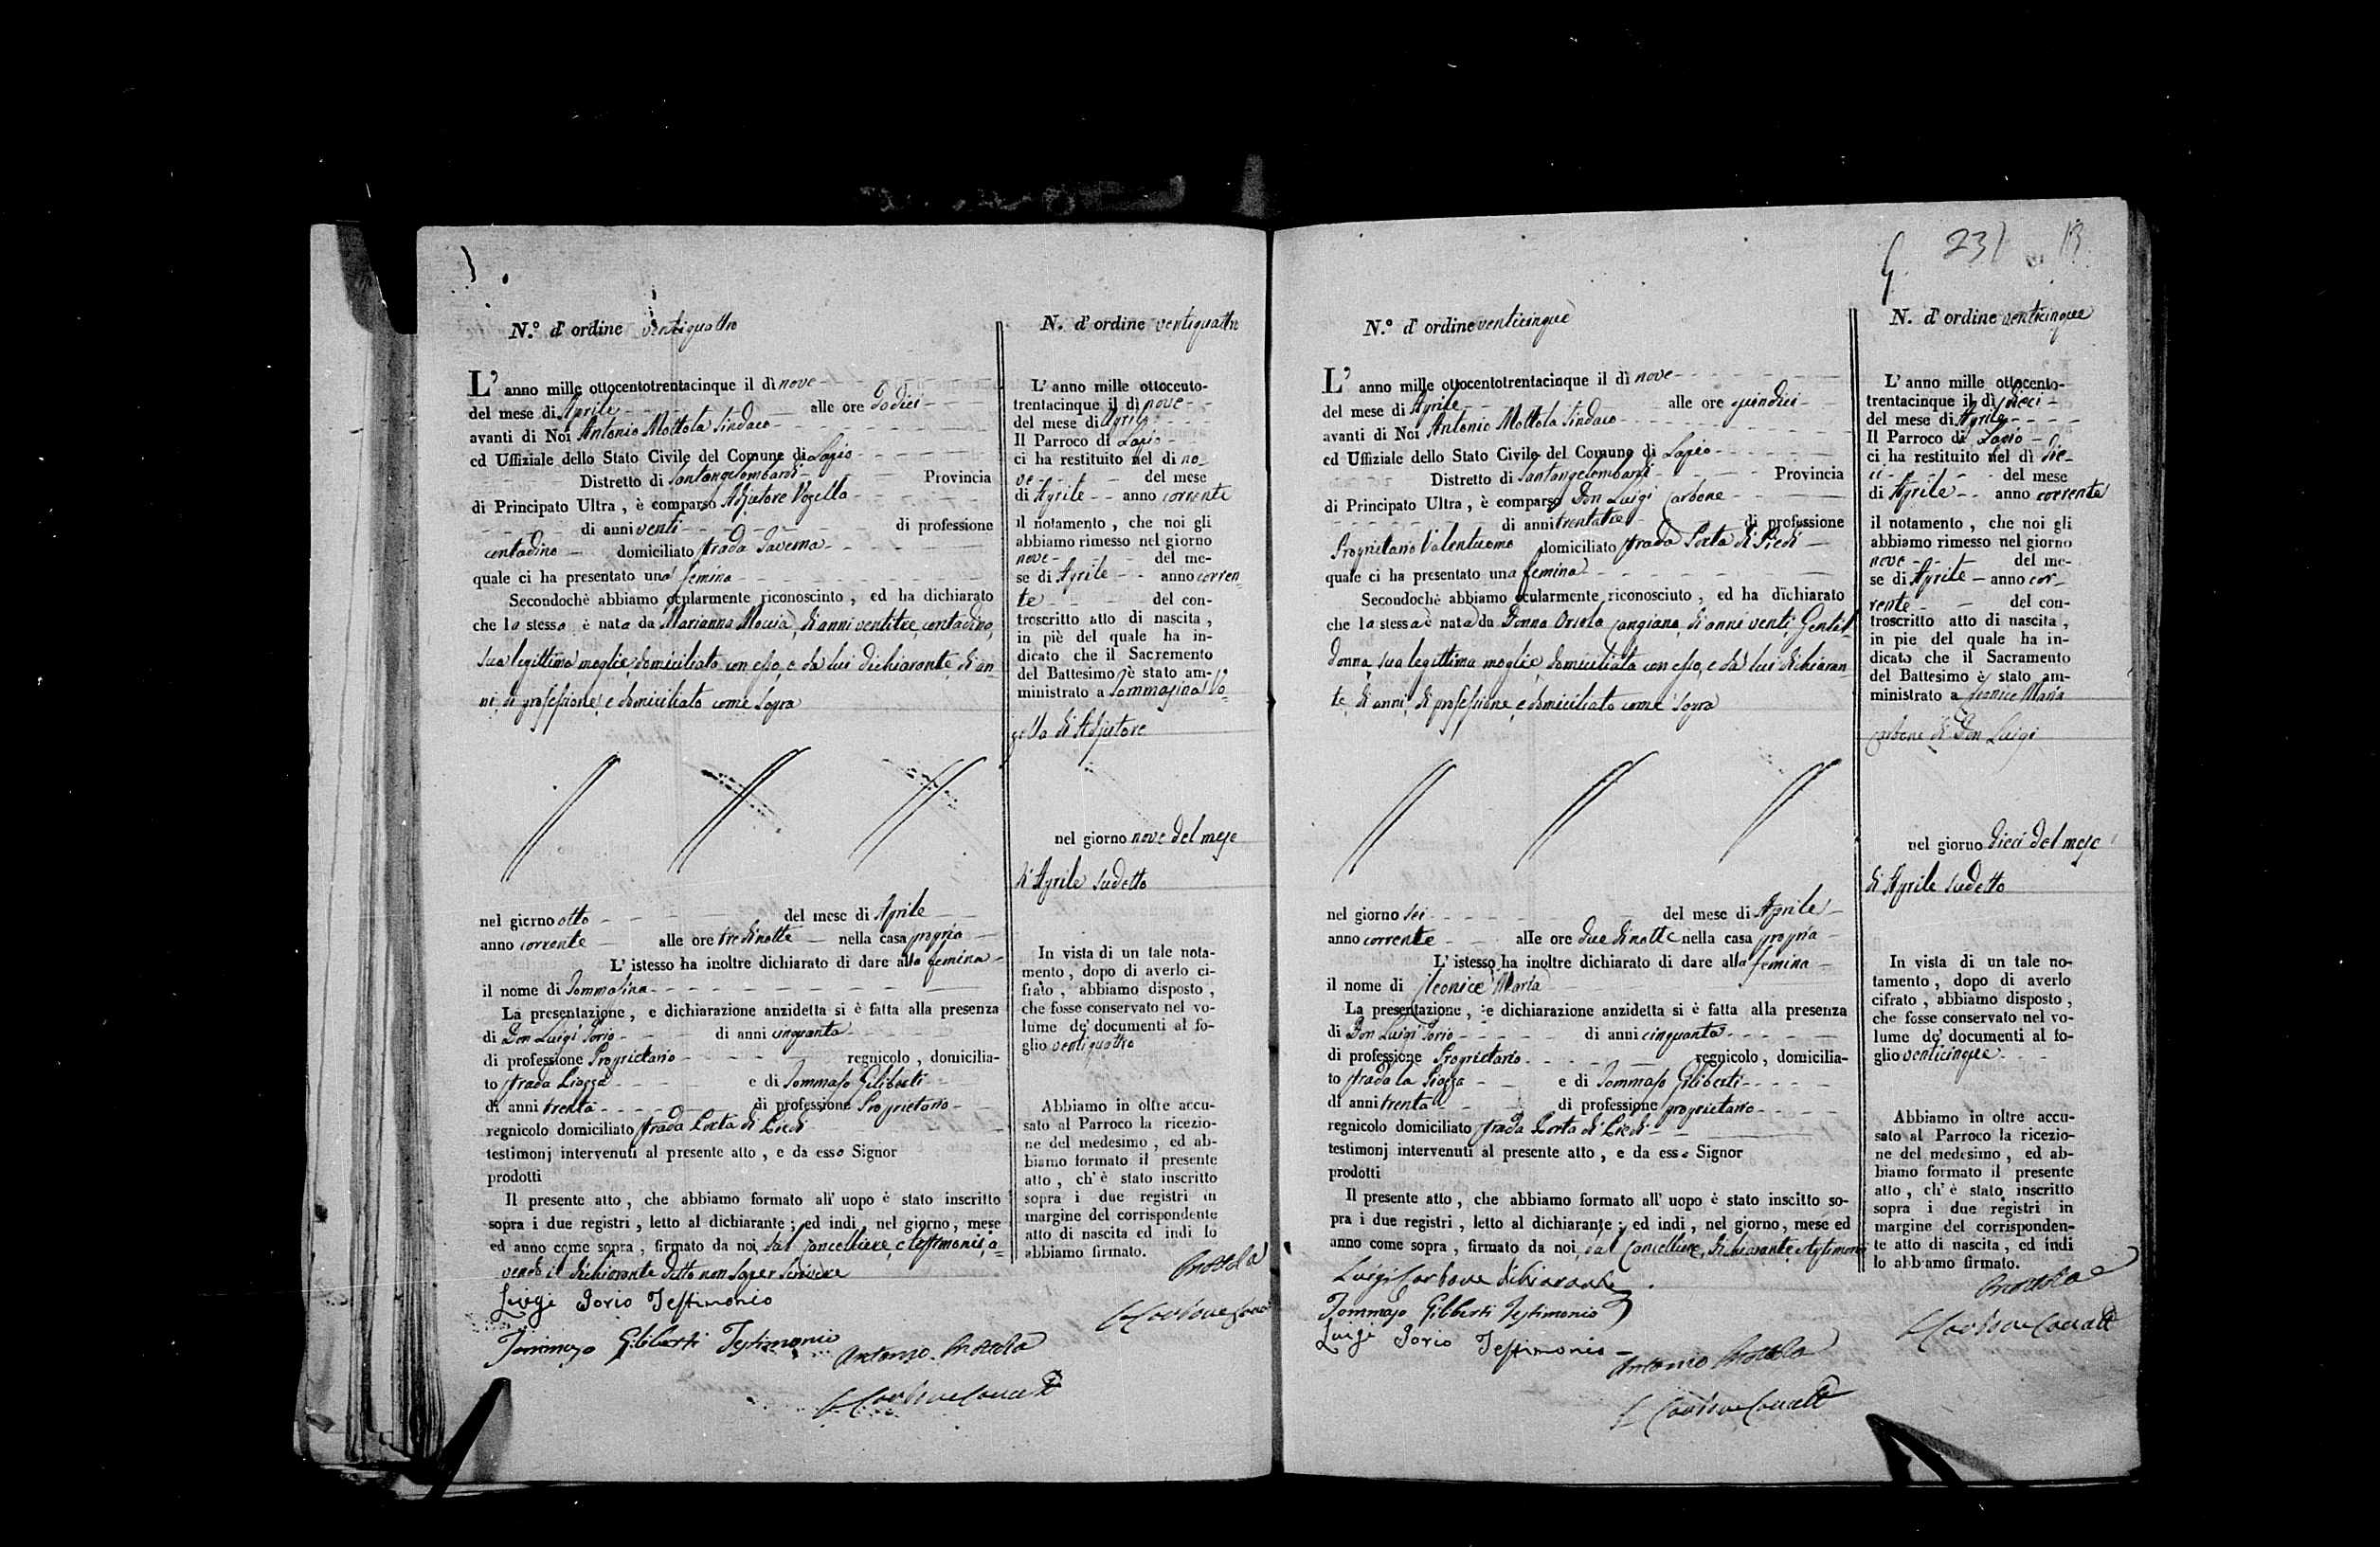 N.º d'ordine ventiquattro
L' anno mille ottocentotrentacinque il dì nove
del mese di Aprile alle ore dodici
avanti di Noi Antonio Mottola Sindaco
ed Uffiziale dello Stato Civile del Comune di Lapio
Distretto di Santangelombardi Provincia
di Principato Ultra, è comparso Adjutore Vozella
di anni venti di professione
contadino domiciliato strada Taverna
quale ci ha presentato una femina
Secondochè abbiamo ocularmente riconosciuto, ed ha dichiarato
che la stessa è nata da Marianna Moccia, di anni ventitre, contadina,
sua legittima moglie, domiciliata con esso, e da lui dichiarante, di an-
ni, di professione, e domiciliato come sopra
nel giorno otto del mese di Aprile
anno corrente alle ore tre di notte nella casa propria
L' istesso ha inoltre dichiarato di dare alla femina
il nome di Tommasina
La presentazione, e dichiarazione anzidetta si è fatta alla presenza
di Don Luigi Iorio di anni cinquanta
di professione Proprietario regnicolo, domicilia-
to strada Piazza e di Tommaso Giliberti
di anni trenta di professione Proprietario
regnicolo domiciliato strada Porta di Piedi
testimonj intervenuti al presente atto, e da esso Signor
prodotti
Il presente atto, che abbiamo formato all' uopo è stato inscritto
sopra i due registri, letto al dichiarante; ed indi, nel giorno, mese
ed anno come sopra, firmato da noi, dal Cancelliere, e testimonij, a-
vendo il dichiarante detto non saper scrivere
Luigi Iorio Testimonio
Tommaso Giliberti Testimonio
Antonio Mottola
N. d'ordine ventiquattro
L' anno mille ottocento-
trentacinque il dì nove
del mese di Aprile
Il Parroco di Lapio
ci ha restituito nel dì no-
ve del mese
di Aprile anno corrente
il notamento, che noi gli
abbiamo rimesso nel giorno
nove del me-
se di Aprile anno corren-
te del con-
troscritto atto di nascita,
in piè del quale ha in-
dicato che il Sacremento
del Battesimo è stato am-
ministrato a Tommasina Vo-
zella di Adjutore
nel giorno nove del mese
di Aprile sudetto
In vista di un tale nota-
mento, dopo di averlo ci-
frato, abbiamo disposto,
che fosse conservato nel vo-
lume de' documenti al fo-
glio ventiquattro
Abbiamo in oltre accu-
sato al Parroco la ricezio-
ne del medesimo, ed ab-
biamo formato il presente
atto, ch' è stato inscritto
sopra i due registri in
margine del corrispondente
atto di nascita ed indi lo
abbiamo firmato.
Mottola
231
N.º d'ordine venticinque
L' anno mille ottocentotrentacinque il dì nove
del mese di Aprile alle ore quindici
avanti di Noi Antonio Mottola Sindaco
ed Uffiziale dello Stato Civile del Comune di Lapio
Distretto di Santangelombardi Provincia
di Principato Ultra, è comparso Don Luigi Carbone
di anni trentatre di professione
Proprietario Valentuomo domiciliato strada Porta di Piedi
quale ci ha presentato una femina
Secondochè abbiamo ocularmente riconosciuto, ed ha dichiarato
che la stessa è nata da Donna Orsola Cangiano, di anni venti, Gentil-
donna, sua legittima moglie, domiciliata con esso, e da lui dichiaran-
te, di anni, di professione, e domiciliato come sopra
nel giorno sei del mese di Aprile
anno corrente alle ore due di notte nella casa propria
L' istesso ha inoltre dichiarato di dare alla femina
il nome di Cleonice Maria
La presentazione, e dichiarazione anzidetta si è fatta alla presenza
di Don Luigi Iorio di anni cinquanta
di professione Proprietario regnicolo, domicilia-
to strada la Piazza e di Tommaso Giliberti
di anni trenta di professione proprietario
regnicolo domiciliato strada Porta di Piedi
testimonj intervenuti al presente atto, e da esso Signor
prodotti
Il presente atto, che abbiamo formato all' uopo è stato inscitto so-
pra i due registri, letto al dichiarante; ed indi, nel giorno, mese ed
anno come sopra, firmato da noi, dal Cancelliere, dichiarante, e testimonij
Luigi Carbone dichiarante
Tommaso Giliberti Testimonio
Luigi Iorio Testimonio
Antonio Mottola
N. d'ordine venticinque
L' anno mille ottocento-
trentacinque il dì dieci
del mese di Aprile
Il Parroco di Lapio
ci ha restituito nel dì die-
ci del mese
di Aprile anno corrente
il notamento, che noi gli
abbiamo rimesso nel giorno
nove del me-
se di Aprile anno cor-
rente del con-
troscritto atto di nascita,
in pie del quale ha in-
dicato che il Sacramento
del Battesimo è stato am-
ministrato a Cleonice Maria
Carbone di Don Luigi
nel giorno dieci del mese
di Aprile sudetto
In vista di un tale no-
tamento, dopo di averlo
cifrato, abbiamo disposto,
che fosse conservato nel vo-
lume de' documenti al fo-
glio venticinque
Abbiamo in oltre accu-
sato al Parroco la ricezio-
ne del medesimo, ed ab-
biamo formato il presente
atto, ch' è stato inscritto
sopra i due registri in
margine del corrisponden-
te atto di nascita, ed indi
lo abbiamo firmato.
Mottola